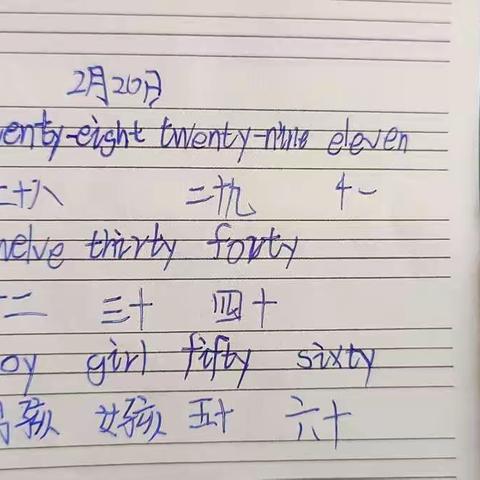 2月20日
enty-eight twenty-nine eleven
二十八 二十九 十一
welve thirty forty
十二 三十 四十
oy girl fifty sixty
男孩 女孩 五十 六十